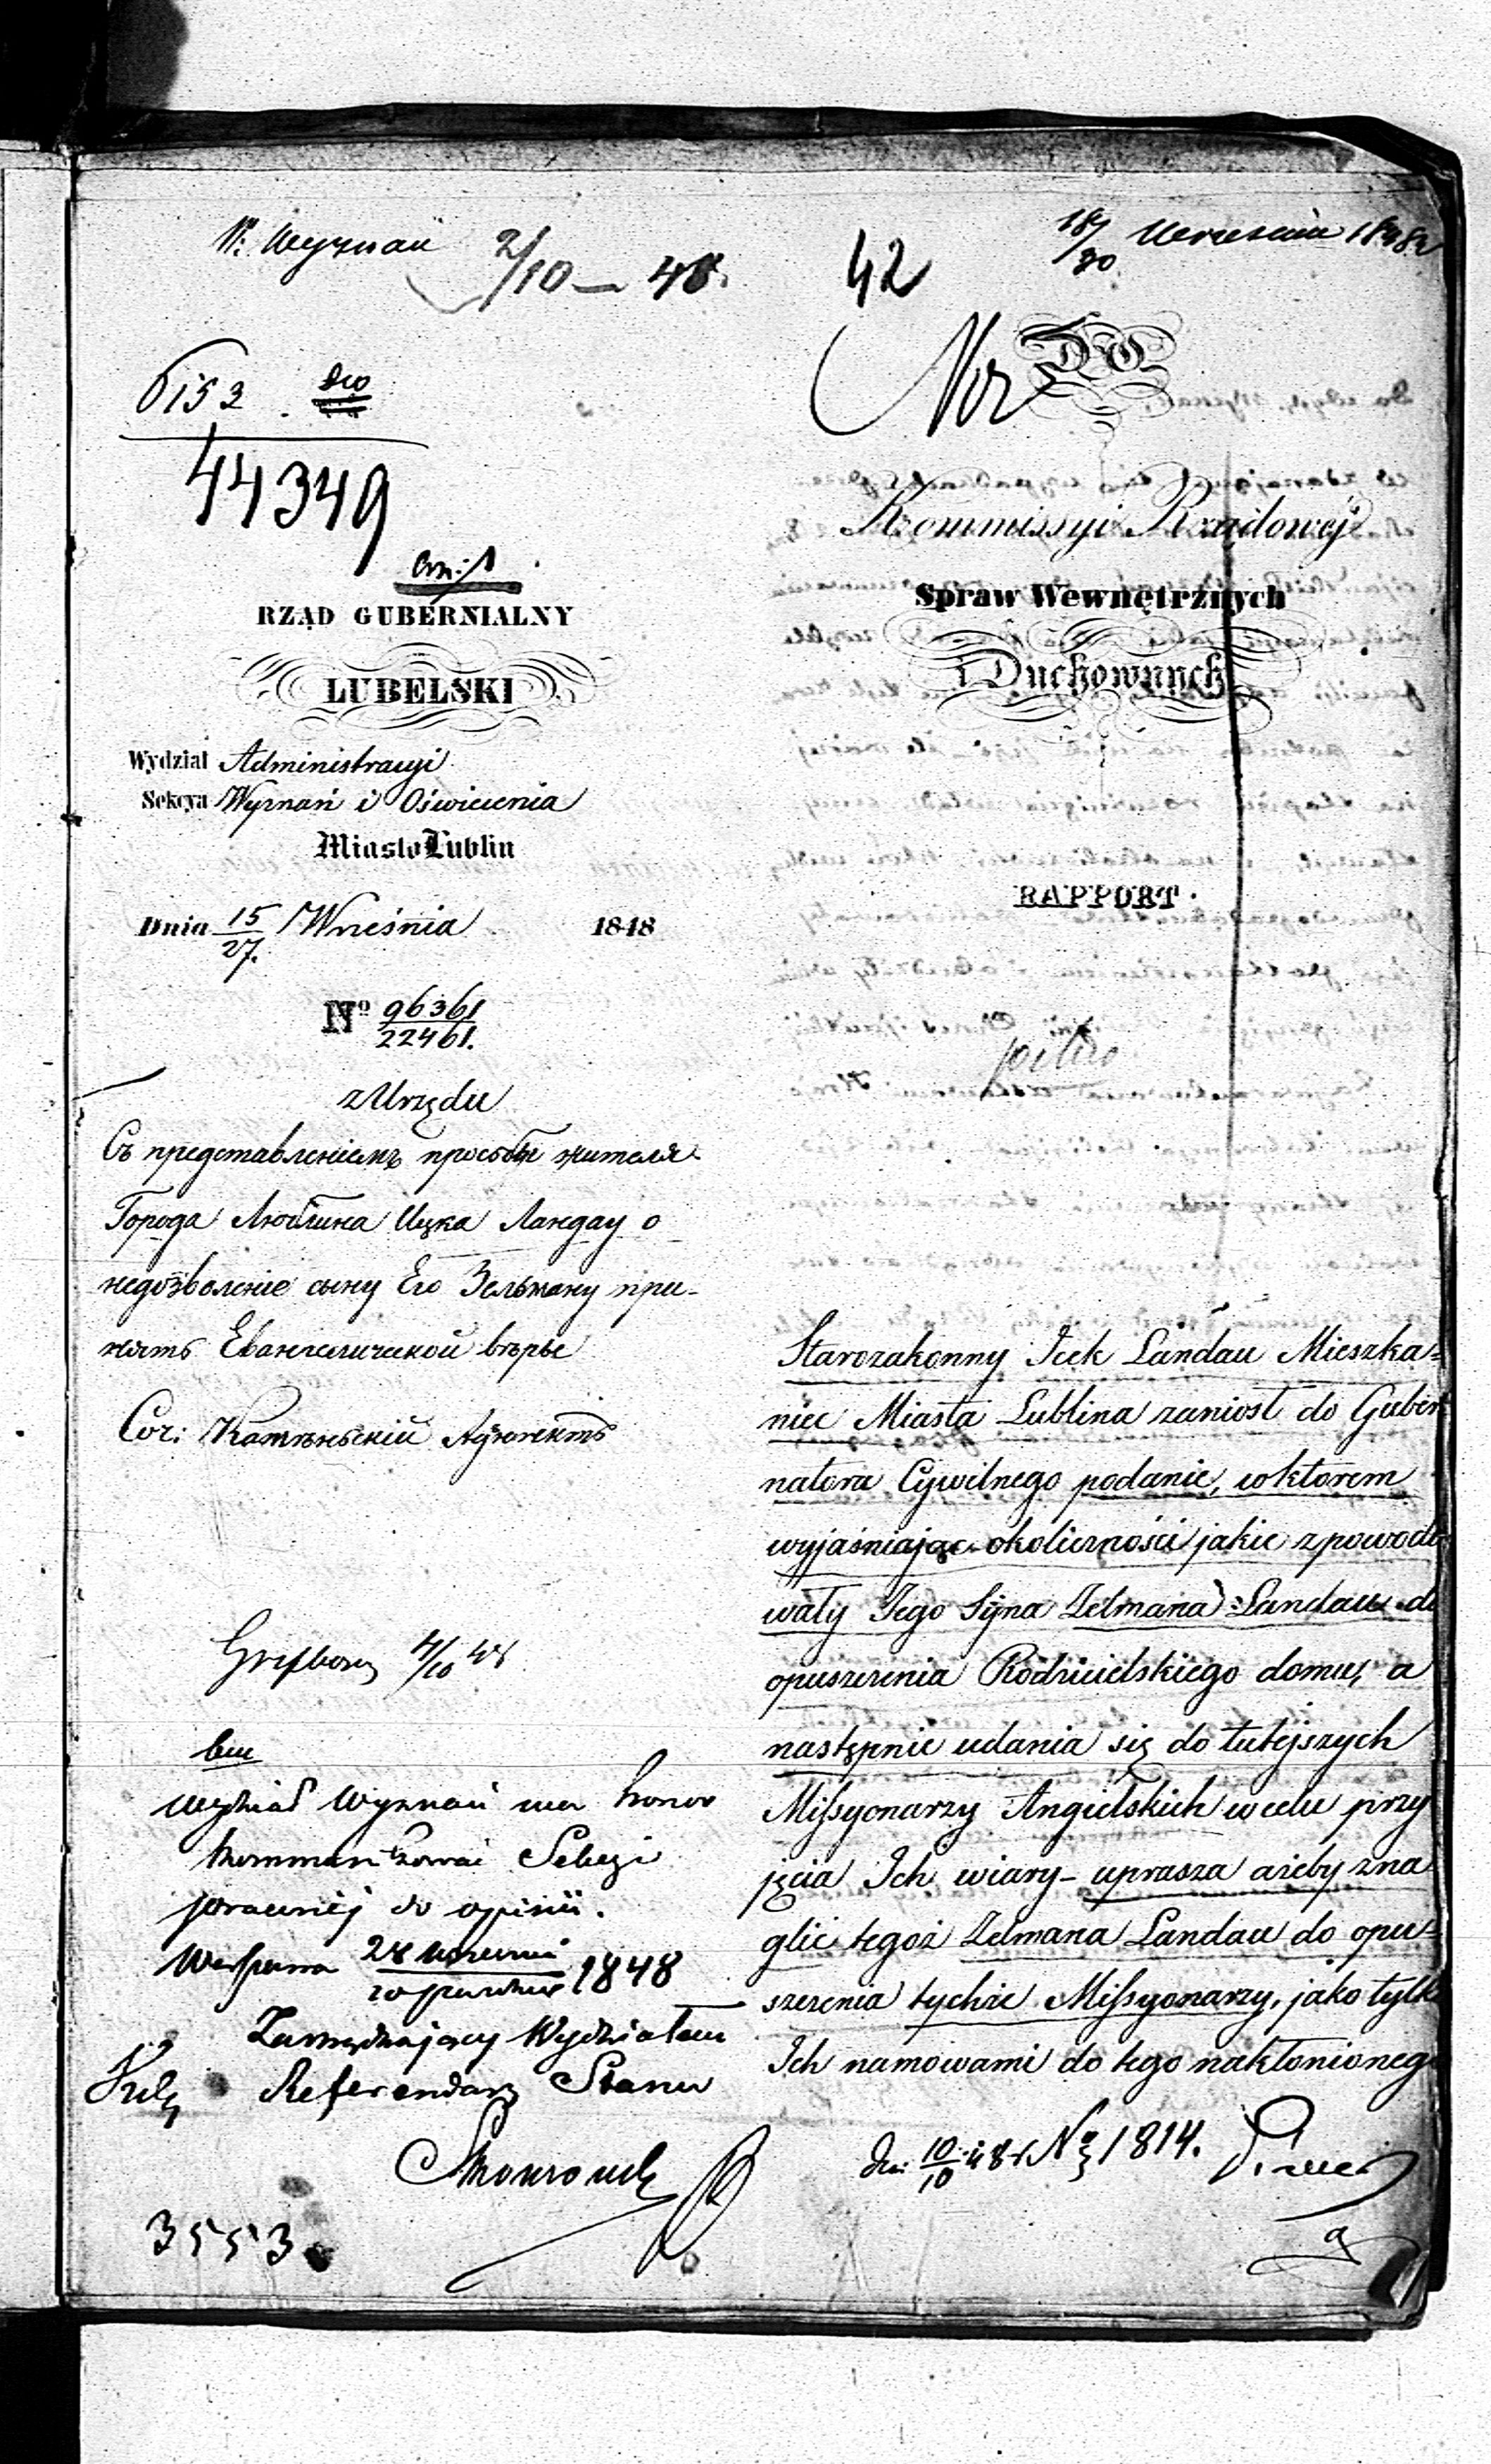 W. Wyznań 2/10 — 48.
42
18/30 Września 1848 r.
6153
44349
RZĄD GUBERNIALNY
LUBELSKI
Wydział Administracyi
Sekcya Wyznań i Oświecenia
Miasto Lublin
Dnia 15/27. Września 1848
No 96361/22461.
z Urzędu
Съ представленіемъ просьбы жителя
Города Люблина Ицка Ландау о
недозволеніе сыну Его Зельману при-
нять Евангелической вѣрье
DO
Kommissyi Rządowej
Spraw Wewnętrznych
i Duchownych
RAPPORT.
pilno
Starozakonny Icek Landau Mieszka=
niec Miasta Lublina zaniosł do Guber
natora Cywilnego podanie, w ktorem
wyjaśniając okoliczności jakie z powodo
wały Jego Syna Zelmana Landau do
opuszczenia Rodzicielskiego domu, a
następnie udania się do tutejszych
Missyonarzy Angielskich w celu przy
jęcia Ich wiary – uprasza ażeby zna
glić tegoż Zelmana Landau do opu=
szczenia tychże Missyonarzy, jako tylko
Ich namowami do tego nakłonionego
4/10 48
Wydział Wyznań ma honor
kommunikować Sekcyi
prawnej do opinii.
Warszawa 28 Września 1848
Zarządzający Wydziałem
Referendarz Stanu
10/10 48 r No 1814.
3553